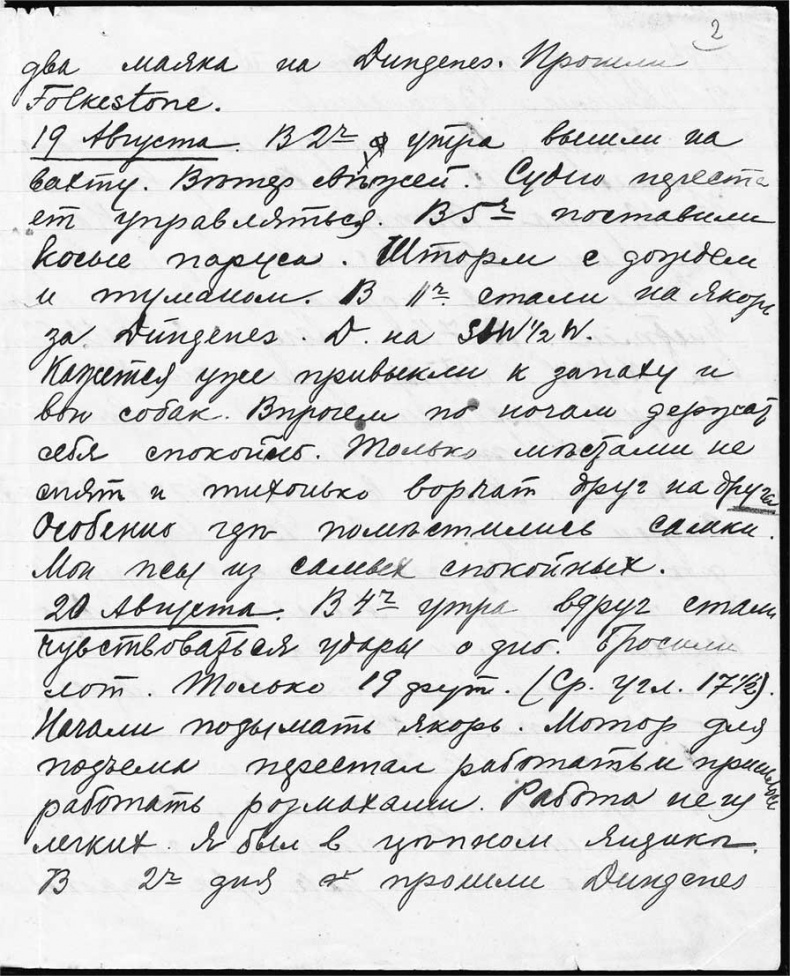 2
два маяка на Dungenes. Прошли
Folkestone.
19 Августа. В 2ч утра вышли на
вахту. Вѣтер свѣжей. Судно переста
ет управляться. В 5ч поставили
косые паруса. Шторм с дождем
и туманом. В 11ч. стали на якорь
за Dungenes. D. на StW 1/2 W.
Кажется уже привыкли к запаху и
вою собак. Впрочем по ночам держат
себя спокойно. Только мѣстами не
спят и тихонько ворчат друг на друга
Особенно гдѣ помѣстились самки.
Мои псы из самых спокойных.
20 Августа. В 4ч утра вдруг стали
чувствоваться удары о дно. Бросили
лот. Только 19 фут. (Ср. угл. 17 1/2).
Начали подымать якорь. Мотор для
подъема перестал работать и пришлось
работать розмахами. Работа не из
легких. Я был в цѣпном ящикѣ.
В 2ч дня прошли Dungenes